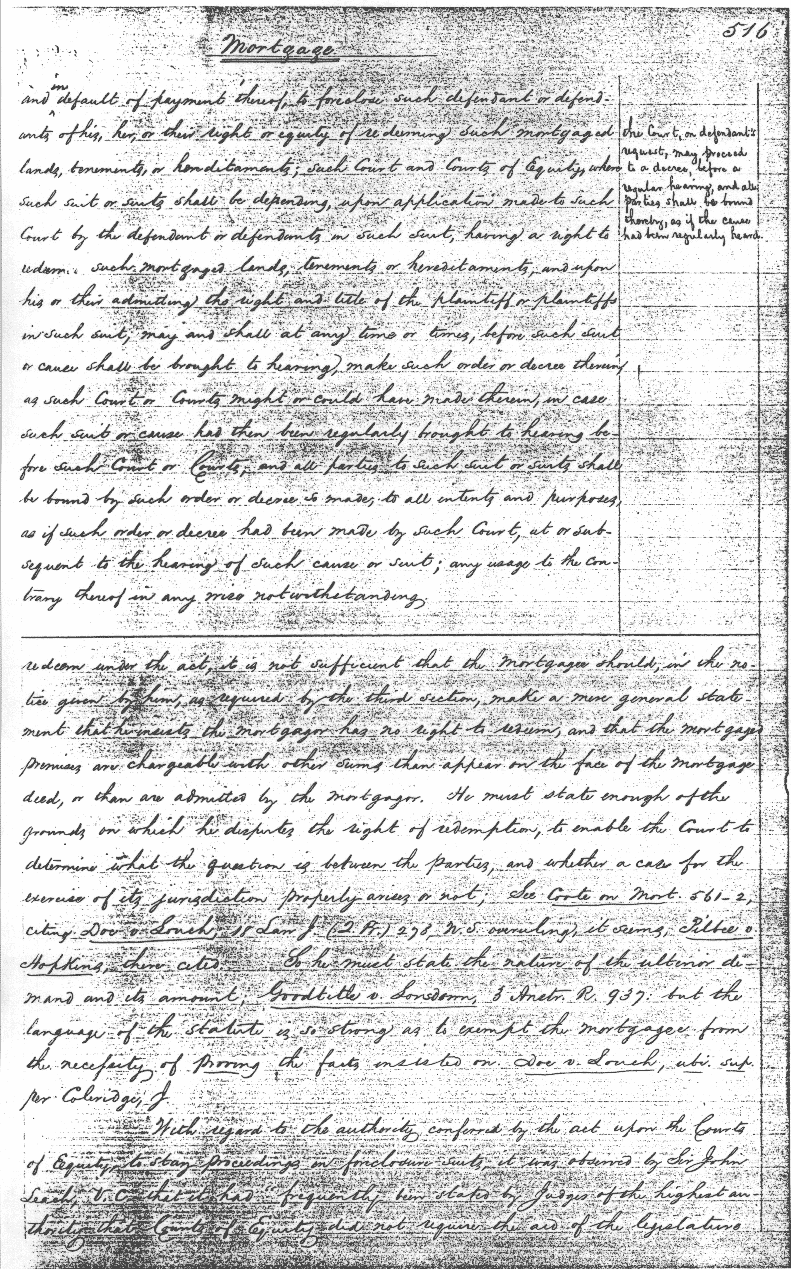 516
Mortgage
in
and default of payment thereof, to foreclose such defendant or defend-
ants of his, her, or their right or equity of redeeming such mortgaged
lands, tenements, or hereditaments; such Court and Courts of Equity, where
such suit or suits shall be depending, upon application made to such
Court by the defendant or defendants in such suit, having a right to
redeem such mortgaged lands, tenements or hereditaments, and upon
his or their admitting the right and title of the plaintiff or plaintiffs
in such suit, may and shall at any time or times, before such suit
or cause shall be brought to hearing, make such order or decree therein,
as such Court or Courts might or could have made therein, in case
such suit or cause had then been regularly brought to hearing be-
fore such Court or Courts, and all parties to such suit or suits shall
be bound by such order or decree so made, to all intents and purposes,
as if such order or decree had been made by such Court, at or sub-
sequent to the hearing of such cause or suit; any usage to the con-
trary thereof in any wise notwithstanding.
the Court, on defendant's
request, may proceed
to a decree, before a
regular hearing, and all
parties shall be bound
thereby, as if the cause
had been regularly heard.
redeem under the act, it is not sufficient that the mortgagee should, in the no-
tice given by him, as required by the third section, make a mere general state-
ment that he insists the mortgagor has no right to redeem, and that the mortgaged
premises are chargeable with other sums than appear on the face of the mortgage
deed, or than are admitted by the mortgagor. He must state enough of the
grounds on which he disputes the right of redemption, to enable the Court to
determine what the question is between the parties, and whether a case for the
exercise of its jurisdiction properly arises or not, See Coote on Mort. 561-2,
citing Doe v. Louch, 18 Law J. (Q. B.) 278 N.S. overruling, it seems, Filbee v.
Hopkins, there cited. So he must state the nature of the ulterior de-
mand and its amount, Goodtitle v. Lonsdown, 3 Anstr. R. 937: but the
language of the statute is so strong as to exempt the mortgagee from
the necessity of proving the facts insisted on. Doe v. Louch, ubi. sup.
per Coleridge, J.
With regard to the authority conferred by the act upon the Courts
of Equity, to stay proceedings in foreclosure suits, it was observed by Sir John
Leach, V. C. that it had frequently been stated by Judges of the highest au-
thority that Courts of Equity did not require the aid of the legislature